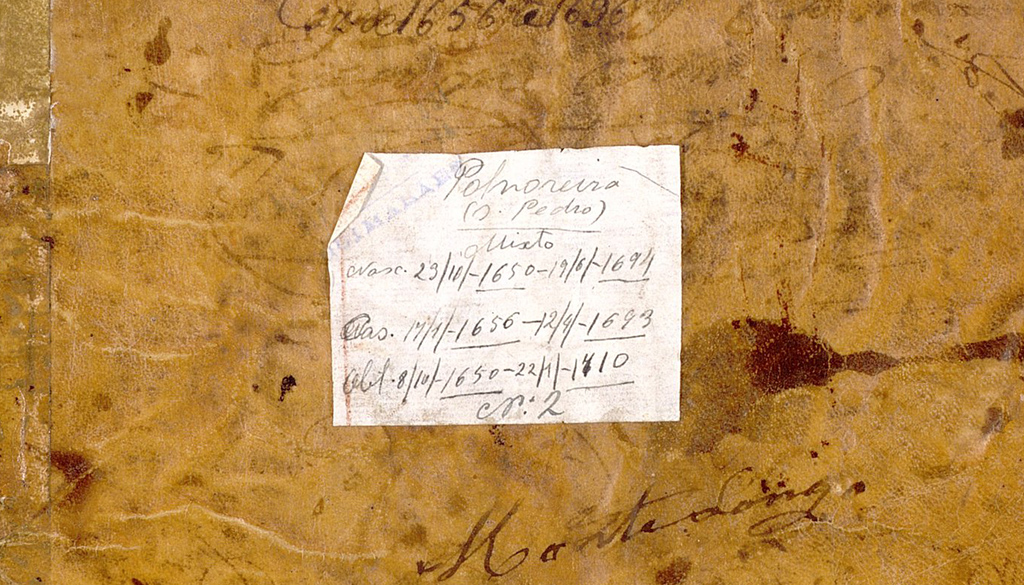 de 1656 a 1696
GUIMARAES
Polvoreira
(S. Pedro)
Mixto
Nasc. 23/10/-1650-19/6/-1694
Cas. 17/1/-1656-12/9/-1693
Obt. 8/10/-1650-22/1/-1710
Nº: 2
Monte Longo